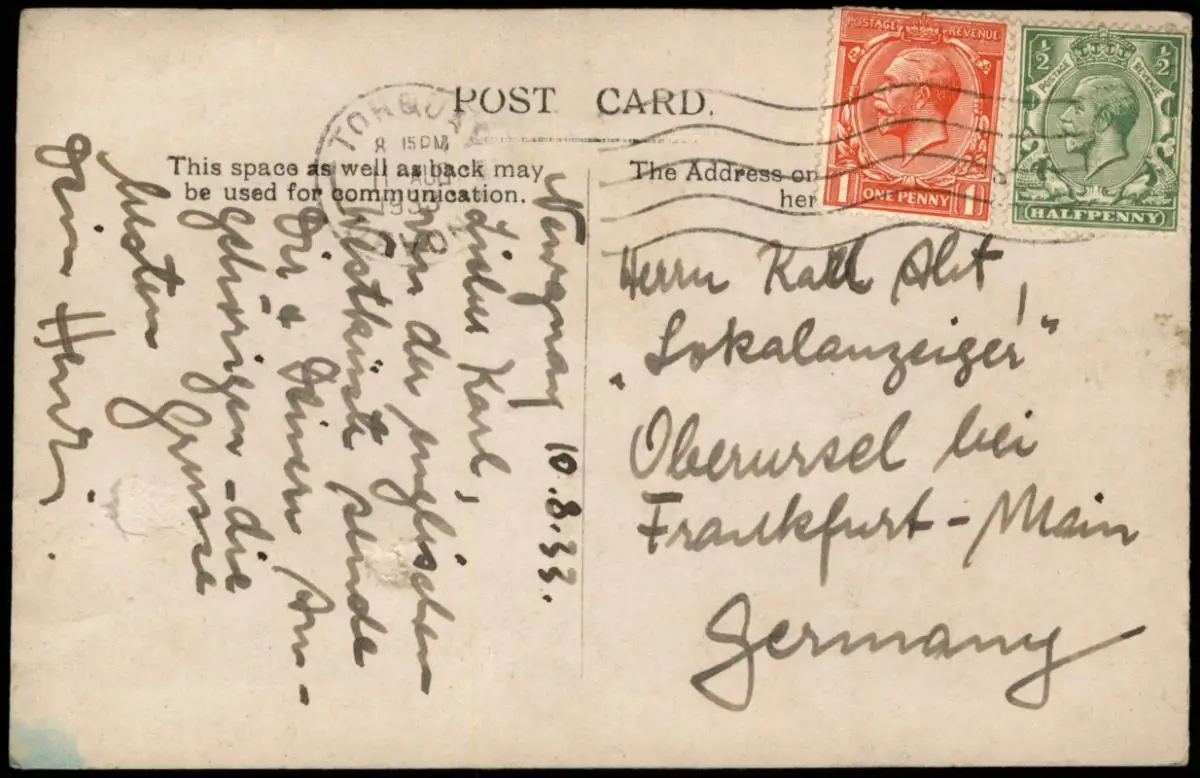 POST CARD.
This space as well as back may
be used for communication.
The Address on
her
POSTAGE REVENUE
ONE PENNY
1 1
½ ½
POSTAGE REVENUE
HALFPENNY
TORQUAY
8 15 PM
AUG
DEVON
Newquay 10.8.33.
Lieber Karl,
von der englischen
Westküste sende
Dir & Deinen An-
gehörigen - die
besten Grüsse
Dein
Herrn Karl Abt,
„Lokalanzeiger"
Oberursel bei
Frankfurt - Main
Germany